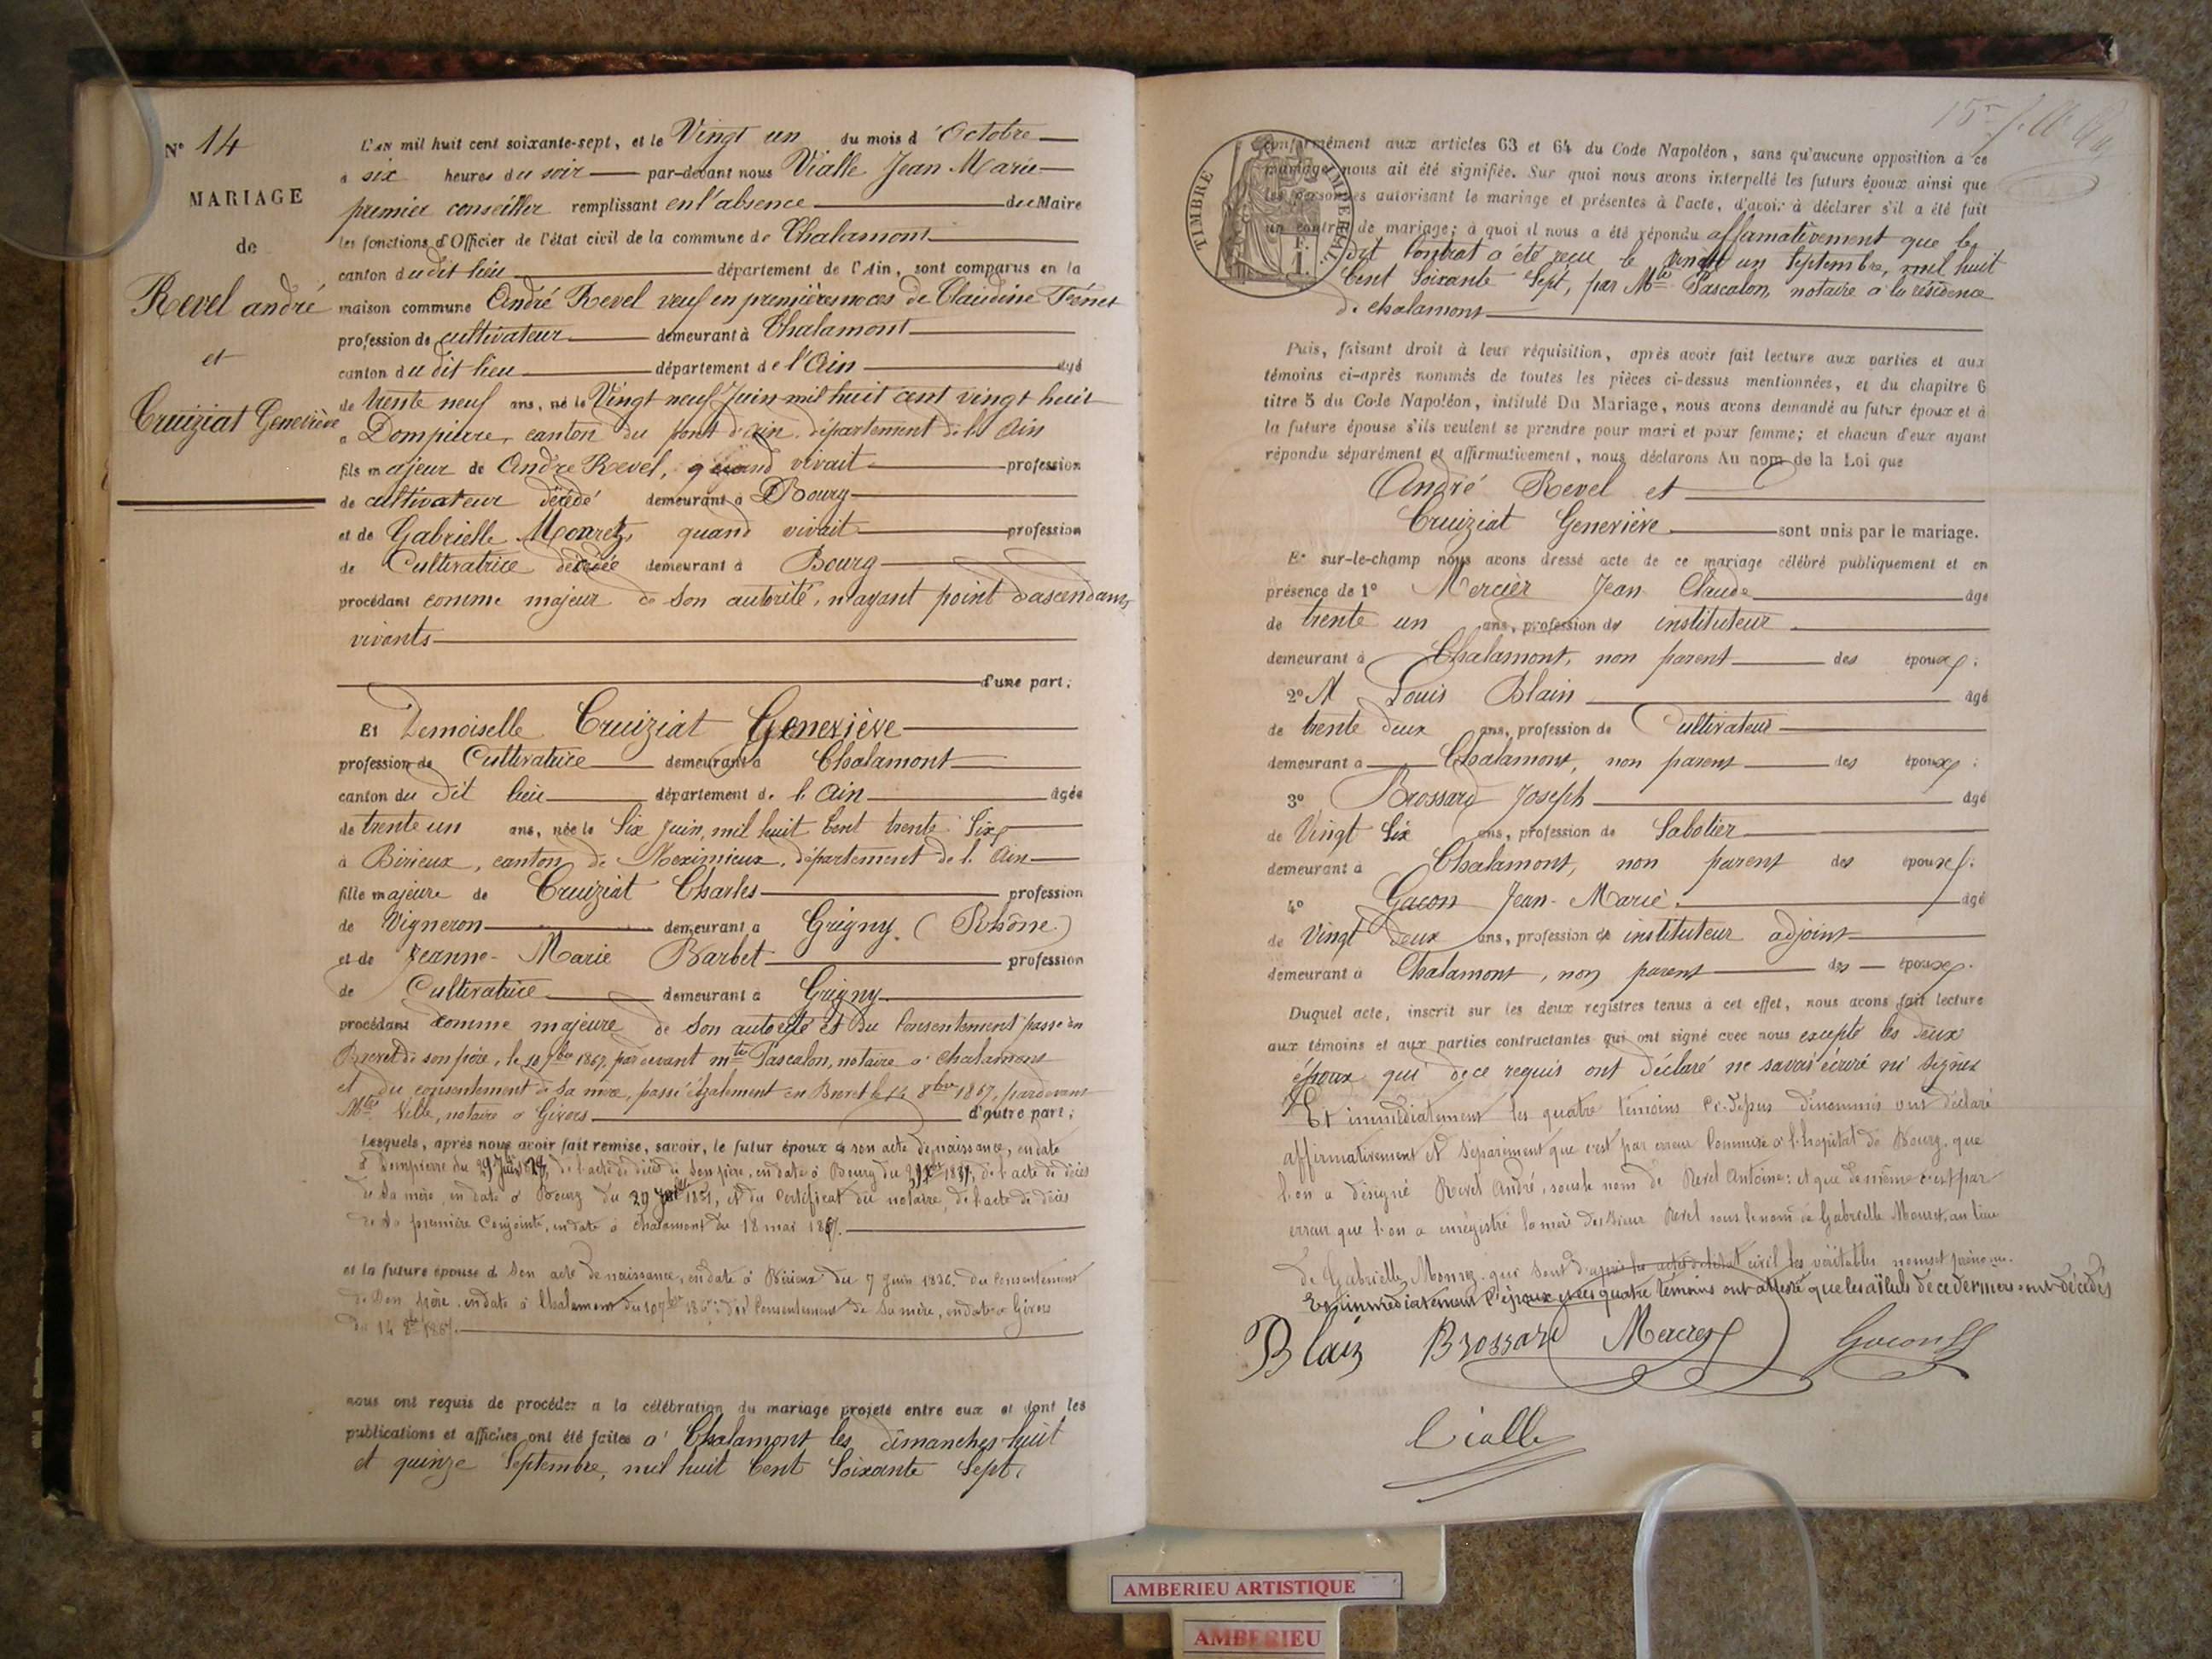 N° 14
MARIAGE
de
Revel andré
et
Cruiziat Geneviève
L'AN mil huit cent soixante-sept, et le Vingt un du mois d'Octobre
à six heures du soir par-devant nous Vialle Jean Marie
premier conseiller remplissant en l'absence du Maire
les fonctions d'Officier de l'état civil de la commune de Chalamont
canton du dit lieu département de l'Ain, sont comparus en la
maison commune André Revel veuf en premières noces de Claudine
profession de cultivateur demeurant à Chalamont
canton du dit lieu département de l'Ain âgé
de trente neuf ans, né le Vingt neuf Juin mil huit cent vingt huit
a Dompierre, canton du pont d'ain, département de l'Ain
fils majeur de André Revel, quand vivait profession
de cultivateur décédé demeurant à Bourg
et de Gabrielle quand vivait profession
de Cultivatrice décédée demeurant à Bourg
procédant comme majeur de son autorité, n'ayant point d'ascendans
vivants
d'une part;
Et Demoiselle Cruiziat Geneviève
profession de Cultivatrice demeurant à Chalamont
canton du dit lieu département de l'Ain âgée
de trente un ans, née le Six Juin, mil huit Cent trente Six
à Birieux, canton de Meximieux, département de l'Ain
fille majeure de Cruiziat Charles profession
de Vigneron demeurant à Grigny (Rhône)
et de Jeanne-Marie Barbet profession
de Cultivatrice demeurant à Grigny
procédant comme majeure de son autorité et du Consentement passé en
Brevet de son père, le 10 7bre 1867, par devant mtre Pascalon, notaire à Chalamont
et du consentement de sa mère, passé également en Brevet le 14 8bre 1867, pardevant
Mtre Ville, notaire à Givors d'autre part;
Lesquels, après nous avoir fait remise, savoir, le futur époux de son acte de naissance, en date
à Dompierre du 29 Juin de l'acte de décès de son père, en date à Bourg du de l'acte de décès
de sa mère, en date à Bourg du 29 et du Certificat du notaire, de l'acte de décès
de sa première Conjointe, en date à Chalamont du 18 mai
et la future épouse de son acte de naissance, en date à Birieux du 7 Juin 1836, du Consentement
de Son père, en date à Chalamont du 10 7bre 1867; du Consentement de Sa mère, en date à Givors
du 14 8bre 1867.
nous ont requis de procéder à la célébration du mariage projeté entre eux et dont les
publications et affiches ont été faites à Chalamont les dimanches huit
et quinze Septembre, mil huit Cent Soixante Sept,
TIMBRE IMPERIAL
1 F.
conformément aux articles 63 et 64 du Code Napoléon, sans qu'aucune opposition à ce
mariage nous ait été signifiée. Sur quoi nous avons interpellé les futurs époux ainsi que
les personnes autorisant le mariage et présentes à l'acte, d'avoir à déclarer s'il a été fait
un contrat de mariage; à quoi il nous a été répondu affirmativement que le
dit Contrat a été reçu le vingt un Septembre, mil huit
Cent Soixante Sept, par Mtre Pascalon, notaire à la résidence
de chalamont
Puis, faisant droit à leur réquisition, après avoir fait lecture aux parties et aux
témoins ci-après nommés de toutes les pièces ci-dessus mentionnées, et du chapitre 6
titre 5 du Code Napoléon, intitulé Du Mariage, nous avons demandé au futur époux et à
la future épouse s'ils veulent se prendre pour mari et pour femme; et chacun d'eux ayant
répondu séparément et affirmativement, nous déclarons Au nom de la Loi que
André Revel et
Cruiziat Geneviève sont unis par le mariage.
Et sur-le-champ nous avons dressé acte de ce mariage célébré publiquement et en
présence de 1° Mercier Jean Claude âgé
de trente un ans, profession de instituteur
demeurant à Chalamont, non parent des époux;
2° M Louis Blain âgé
de trente deux ans, profession de Cultivateur
demeurant à Chalamont, non parent des époux;
3° Brossard Joseph âgé
de Vingt Six ans, profession de Sabotier
demeurant à Chalamont, non parent des époux;
4° Gacon Jean-Marie âgé
de Vingt Deux ans, profession de instituteur adjoint
demeurant à Chalamont, non parent des époux.
Duquel acte, inscrit sur les deux registres tenus à cet effet, nous avons fait lecture
aux témoins et aux parties contractantes qui ont signé avec nous excepté les deux
époux qui de ce requis ont déclaré ne savoir écrire ni Signer
Et immédiatement les quatre témoins Ci-dessus dénommés ont déclaré
affirmativement et Séparément que c'est par erreur Commise à l'hopital de Bourg, que
l'on a désigné Revel André, sous le nom de Revel Antoine; et que de même c'est par
erreur que l'on a enregistré la mère du Sieur Revel sous le nom de Gabrielle Mouret, au lieu
de Gabrielle qui sont d'après les actes de l'état civil les véritables noms et prénoms.
Et immédiatement l'époux et les quatre témoins ont attesté que les aïeuls de ce dernier sont décédés
Blain Brossard Mercier Gacon
Vialle
AMBERIEU ARTISTIQUE
AMBERIEU